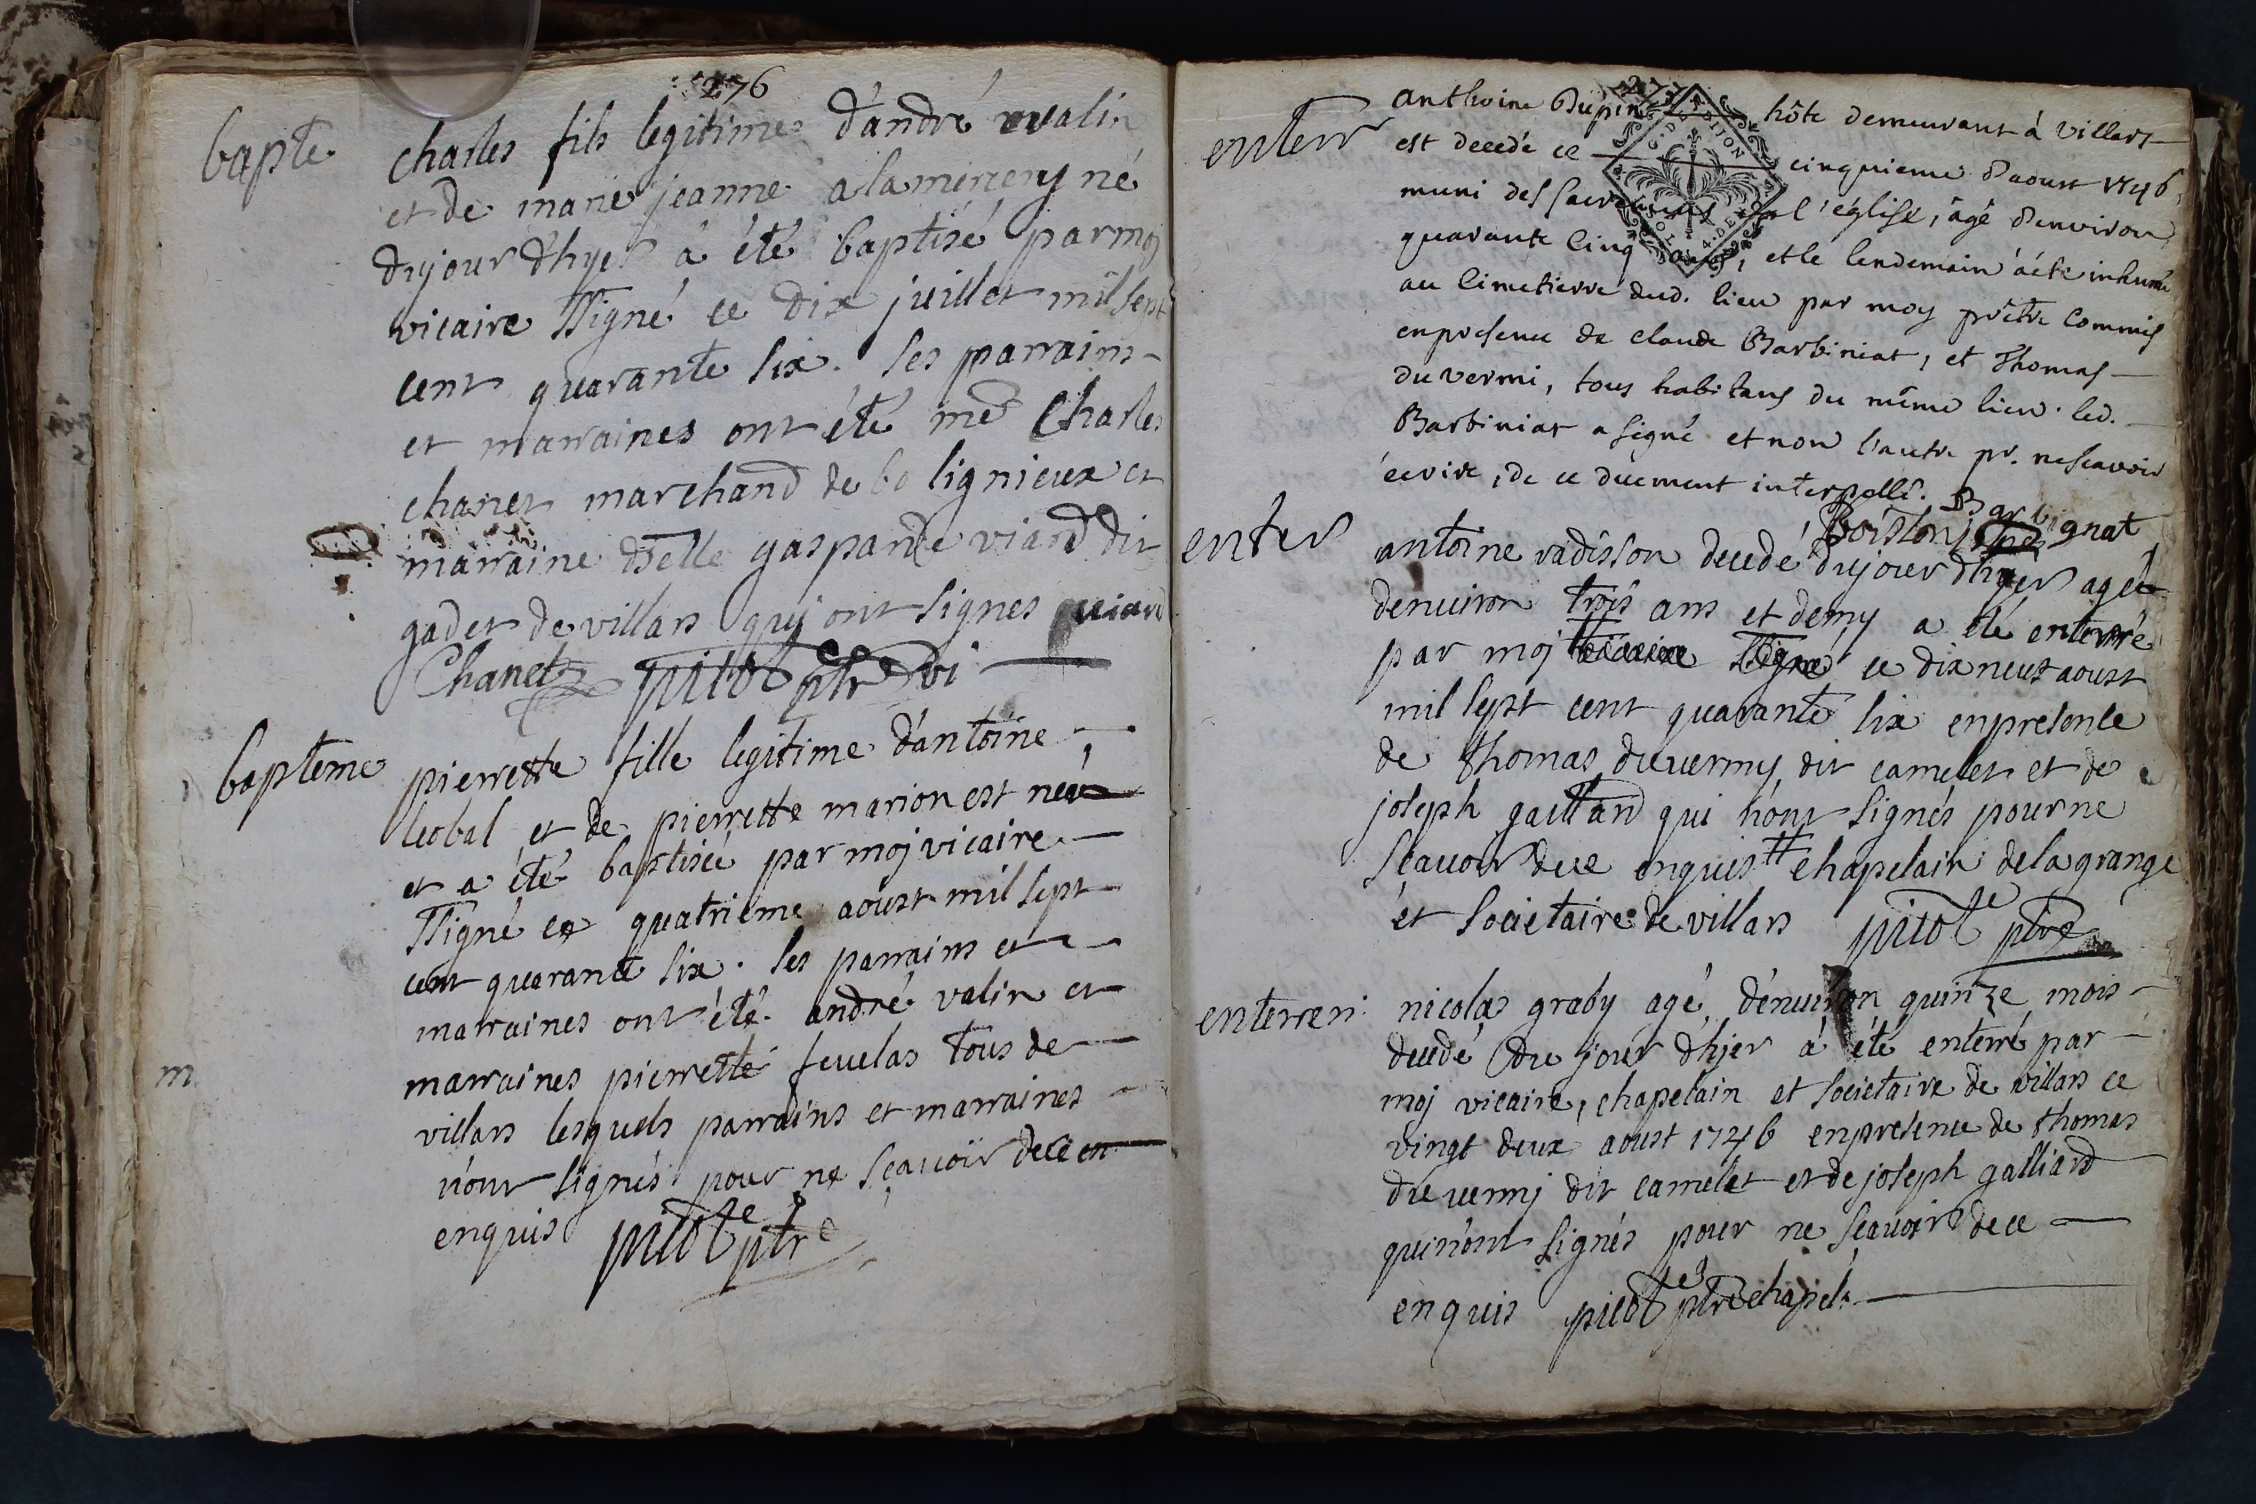 276
bapte
charles fils legitime d'andré valin
et de marie jeanne alamercery né
dujour d'hyer à été baptisé parmoj
vicaire ssigné ce dix juillet mil sept
cent quarante six. ses parrains
et marraines ont été me Charles
chanet marchand de bo lignieux et
marraine dselle gasparde viard dit
gadet de villars quj ont signes gviard
Chanet pitot ptre vi
bapteme
pierrette fille legitime d'antoine
leobal et de pierrette marion est née
et a été baptisée par moj vicaire
ssigné ce quatrieme aoust mil sept
cent quarante six. ses parrains et
marraines ont été andré valin et
marraines pierrette fevelas tous de
m
villars lesquels parrains et marraines
n'ont signés pour ne sçavoir dece en
enquis pitot ptre
enterr
anthoine Dupin hôte demeurant à Villars
G. DE DIJON
SOL. 4. DEN
est decedé ce cinquieme d'aoust 1746,
muni des sacremens de l'église, âgé d'environ
quarante cinq ans, et le lendemain a été inhumé
au cimetierre dud. lieu par moy prêtre commis
en presence de claude Barbiniat, et Thomas
duvermi, tous habitans du même lieu. led.
Barbiniat a signé et non l'autre pr. ne scavoir
écrire, de ce duement interpellé. Barbignat
Boiston ptre
enter
antoine radisson decedé dujour d'hyer agé
denuiron trois ans et demy a été enterré
par moj vicaire ssigné ce dix neuf aoust
mil sept cent quarante six enpresence
de thomas duvermy dit camelet et de
joseph gaillard qui n'ont signés pour ne
sçavoir dece enquis # chapelain de la grange
et societaire de villars pitot ptre
enterrem
nicolas graby agé d'énuiron quinze mois
decedé du jour d'hjer à été enterré par
moj vicaire, chapelain et societaire de villars ce
vingt deux aoust 1746 enpresence de thomas
duvermj dit camelet et de joseph galliard
quin'ont signés pour ne sçavoir de ce
enquis pitot ptre chapel.